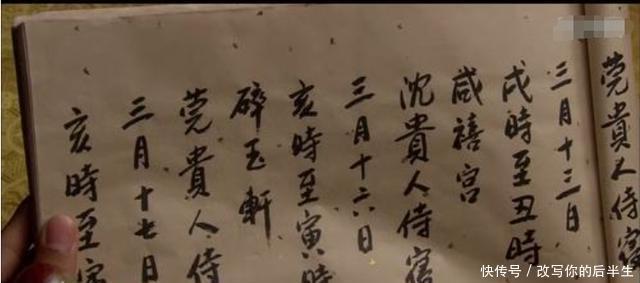 莞貴人侍寢
三月十三日
戌時至丑時
咸禧宮
沈貴人侍寢
三月十六日
亥時至寅時
碎玉軒
莞貴人侍
三月十七日
亥時至寅
快传号/改写你的后半生